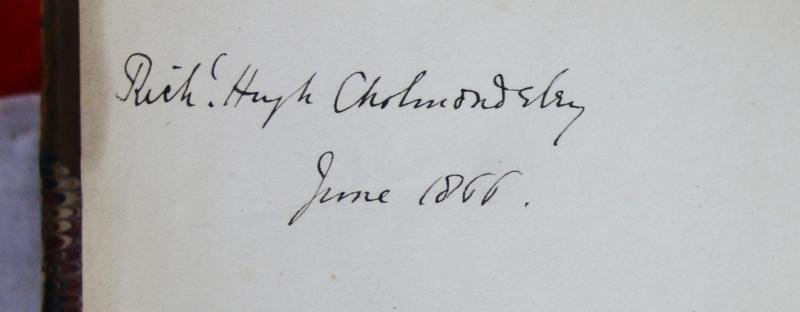 Richd. Hugh Cholmondeley
June 1866.